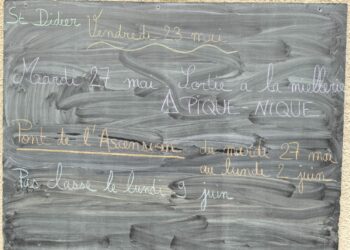 St Didier Vendredi 23 mai
Mardi 27 mai Sortie à la miellerie
APIQUE-NIQUE
Pont de l'Ascension du mardi 27 mai
au lundi 2 juin
Pas classe le lundi 9 juin